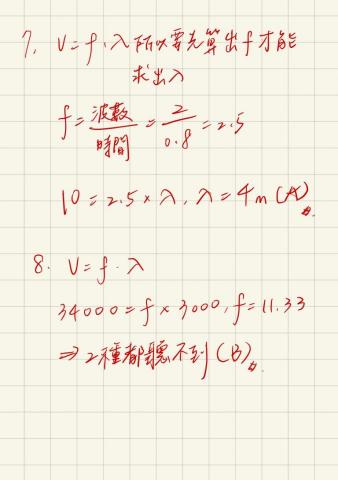 7. V=f.λ 所以要先算出f才能
求出λ
f=波數/時間=2/0.8=2.5
10=2.5×λ, λ=4m (A)#.
8. V=f.λ
34000=f×3000, f=11.33
⇒2種都聽不到(B)#.